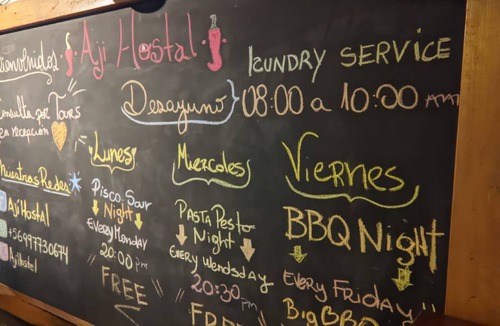 Bienvenidos
Aji Hostal
LCUNDRY SERVICE
Desayuno 08:00 a 10:00 AM
Consulta por Tours
en recepción
Nuestras Redes
AjiHostal
+56997730674
AjiHostel
Lunes
Pisco-Sour
Night
Every Monday
20:00 pm
FREE
Miercoles
PASTA Pesto
Night
Every Wendsday
20:30 pm
FREE
Viernes
BBQ Night
Every Friday
Big BBQ